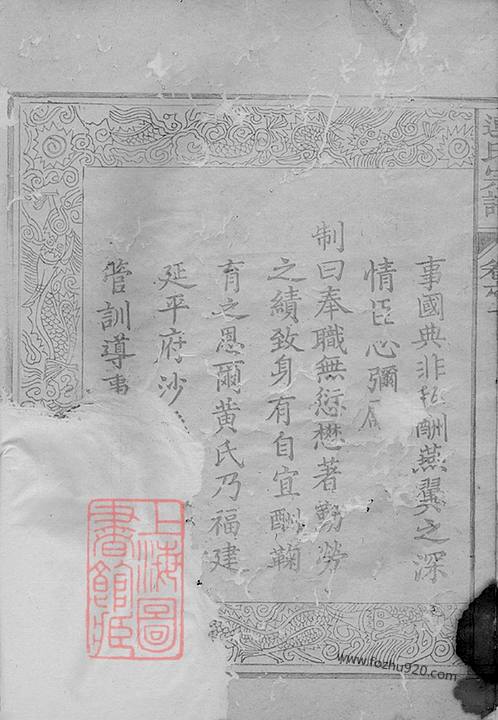 連氏宗譜
事國典非輕酬燕翼之深
情臣心彌
制曰奉職無愆懋著勤勞
之績致身有自宜酬鞠
育之恩爾黃氏乃福建
延平府沙
管訓導事
上海圖書館藏
www.fozhu920.com